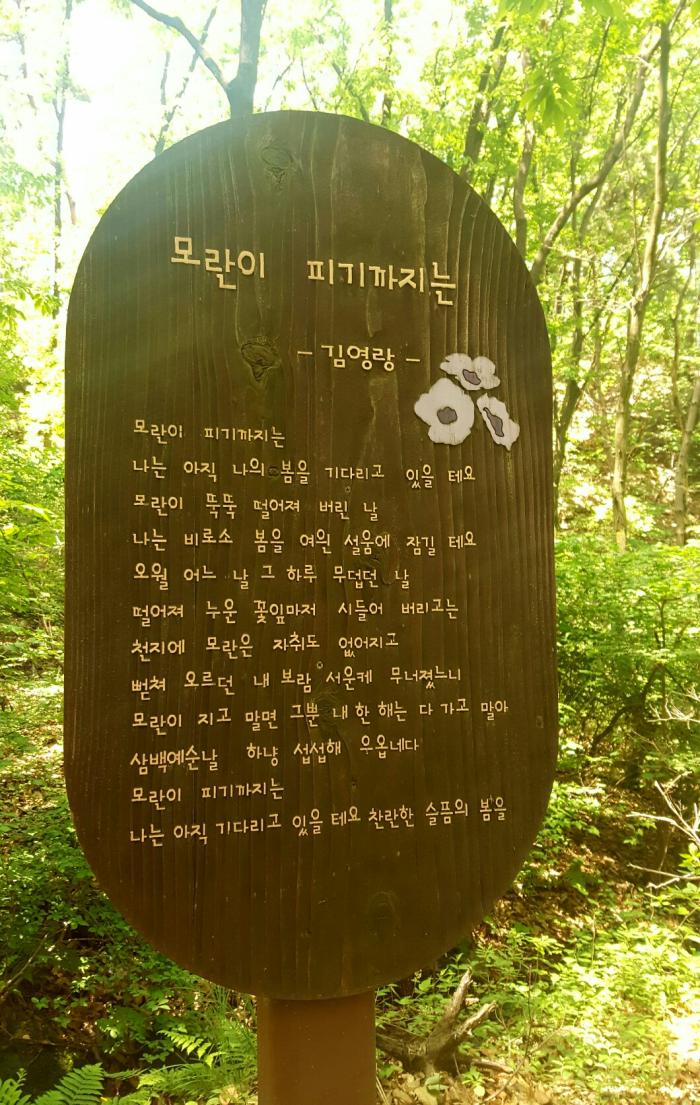 모란이 피기까지는
- 김영랑 -
모란이 피기까지는
나는 아직 나의 봄을 기다리고 있을 테요
모란이 뚝뚝 떨어져 버린 날
나는 비로소 봄을 여읜 설움에 잠길 테요
오월 어느 날 그 하루 무덥던 날
떨어져 누운 꽃잎마저 시들어 버리고는
천지에 모란은 자취도 없어지고
뻗쳐 오르던 내 보람 서운케 무너졌느니
모란이 지고 말면 그뿐 내 한 해는 다 가고 말아
삼백예순날 하냥 섭섭해 우옵네다
모란이 피기까지는
나는 아직 기다리고 있을 테요 찬란한 슬픔의 봄을